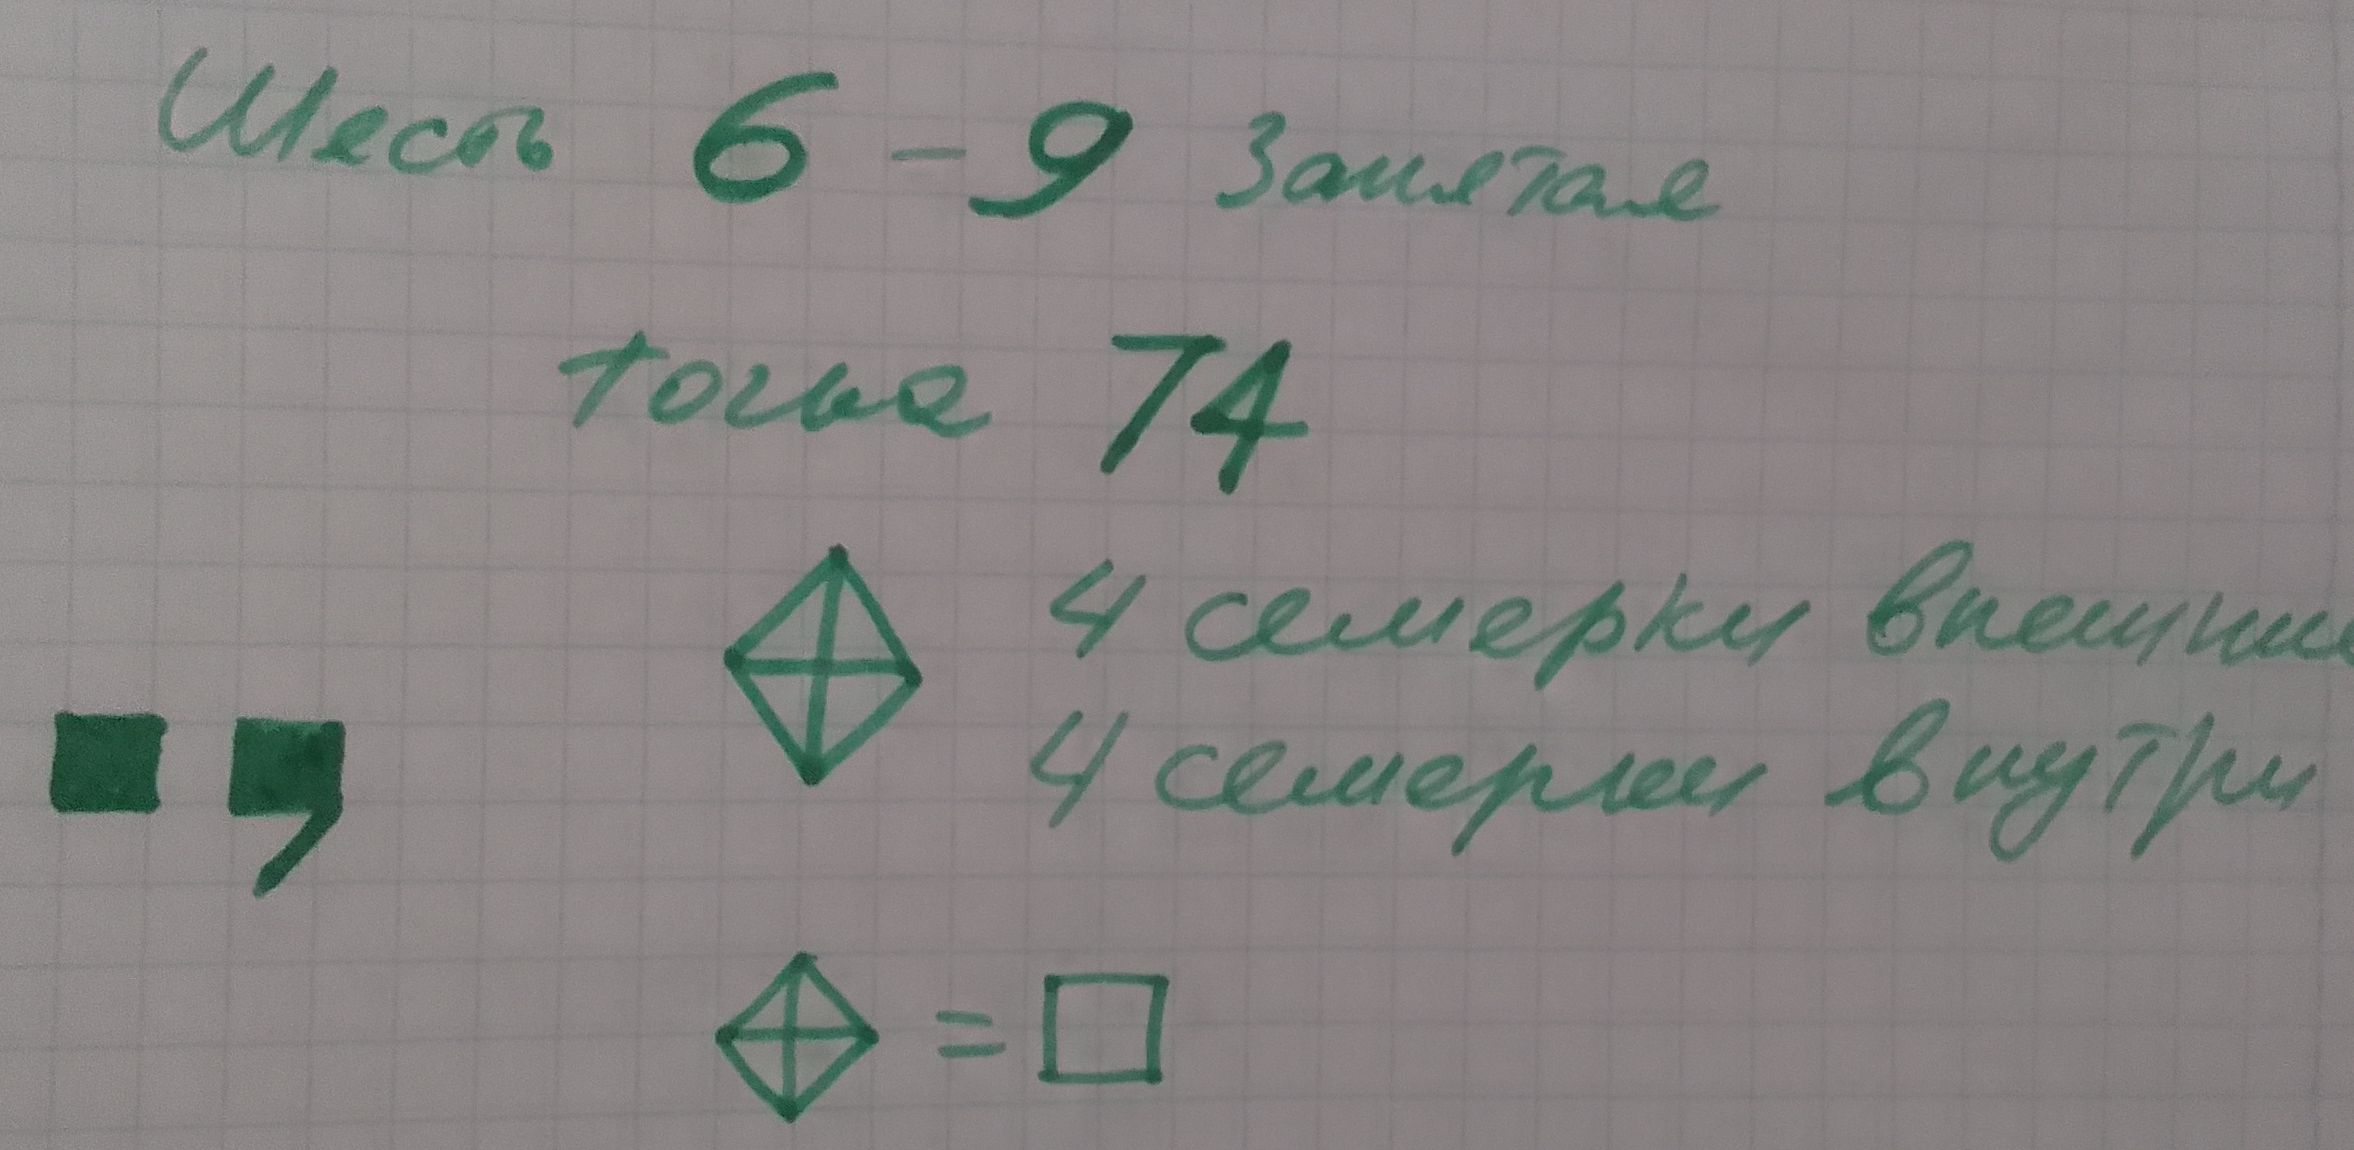 Шесть 6 - 9 Запятая
точка 74
4 семерки внешние
4 семерки внутри
=